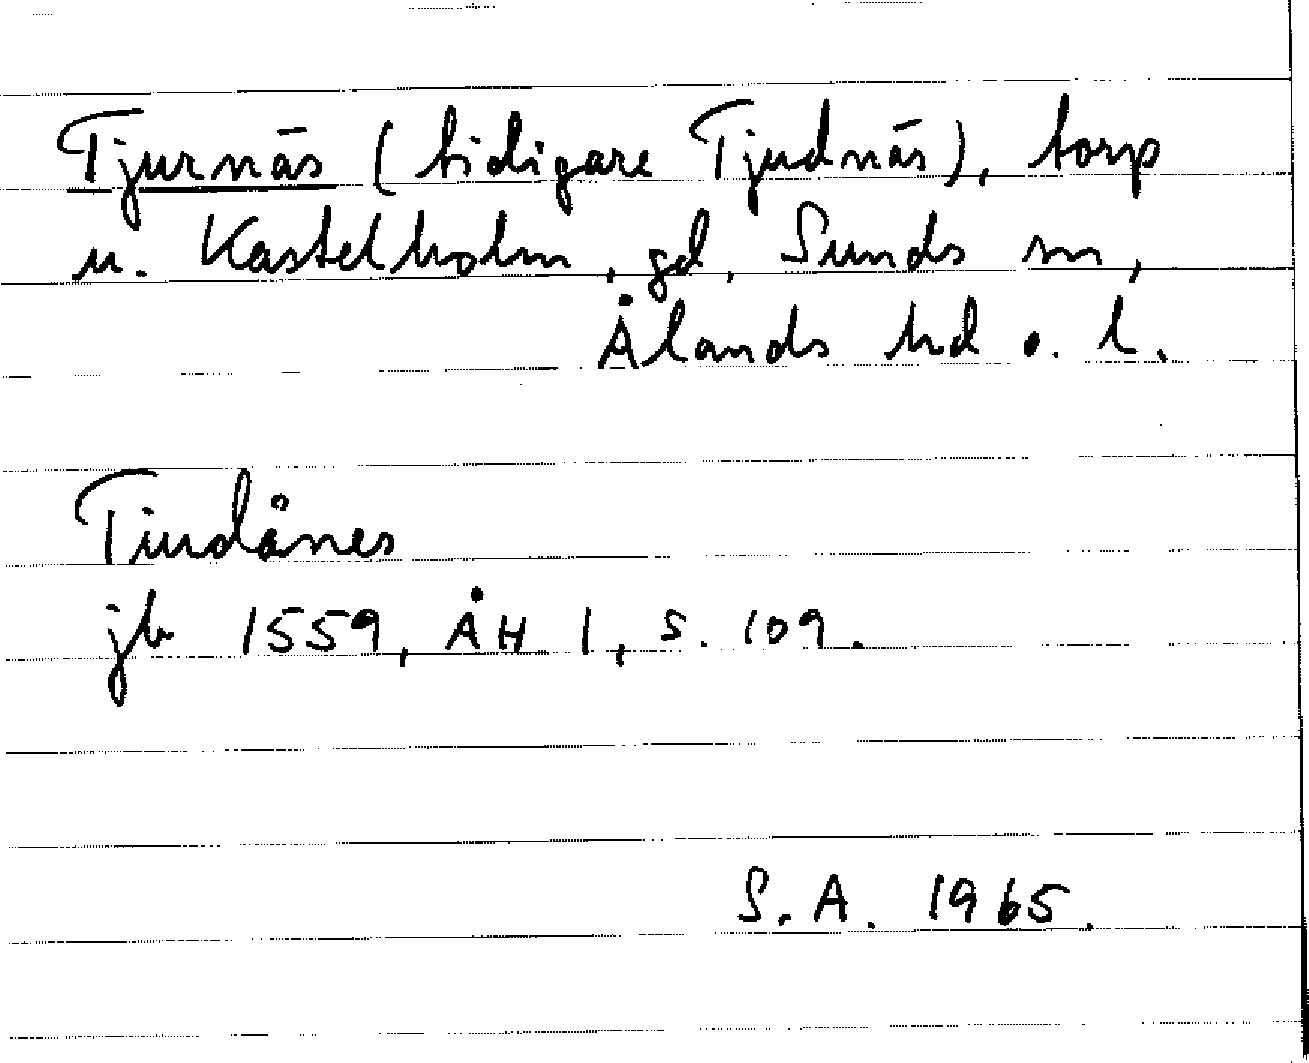 Tjurnäs (tidigare Tjudnäs), torp
u. Kastelholm, gd, Sunds sn,
Ålands hd o. l.
Tiudånes
jb 1559, ÅH 1, s. 109.
S. A. 1965.